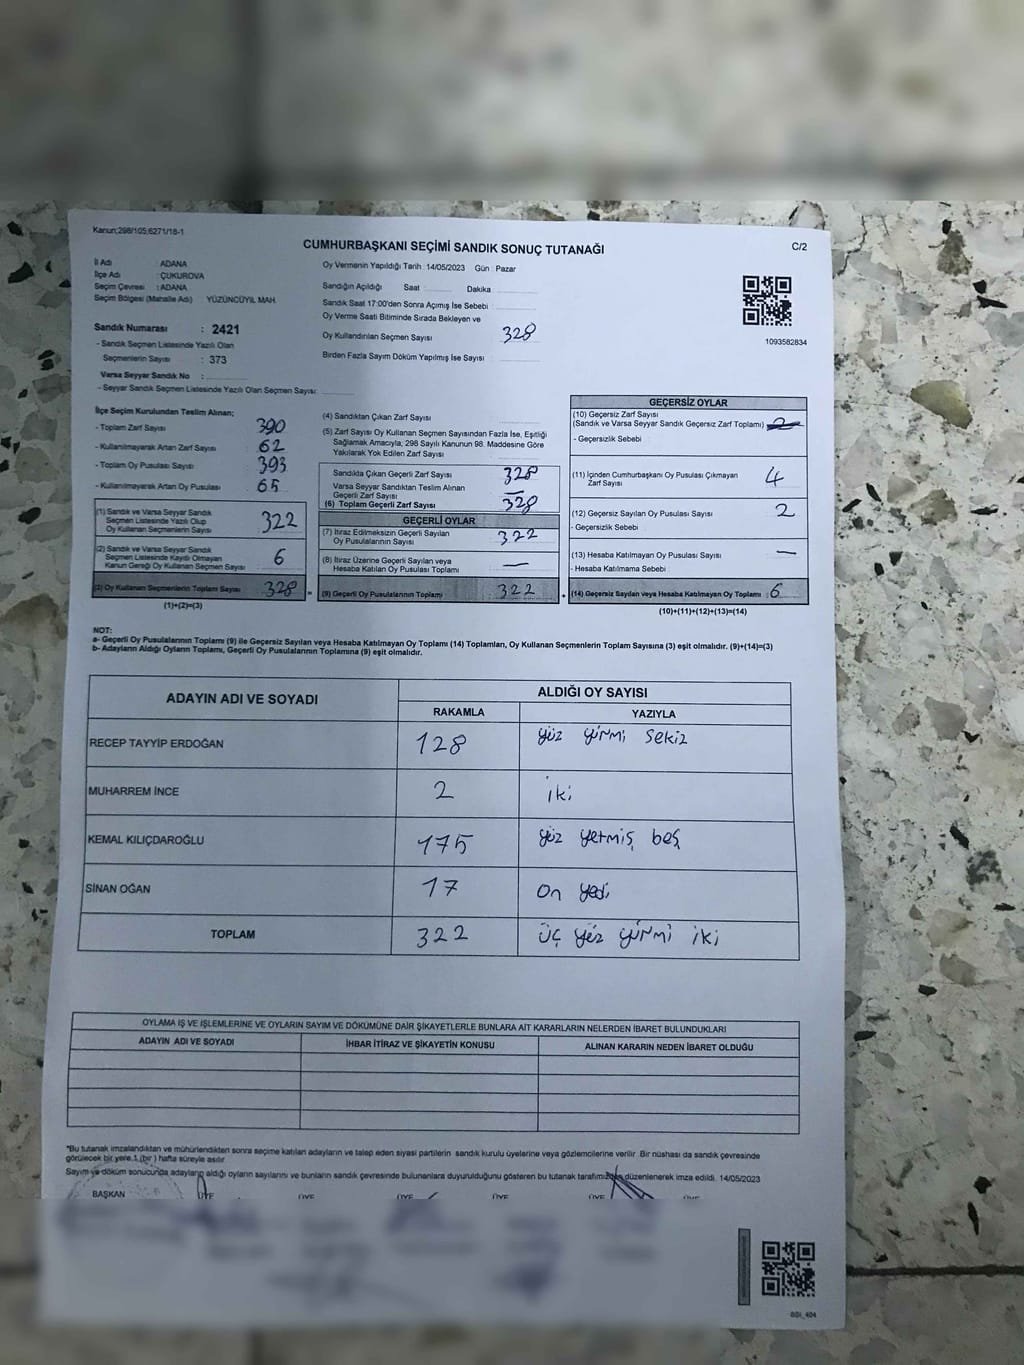 Kanun;298/105;6271/18-1
CUMHURBAŞKANI SEÇİMİ SANDIK SONUÇ TUTANAĞI
C/2
İl Adı ADANA
İlçe Adı : ÇUKUROVA
Seçim Çevresi : ADANA
Seçim Bölgesi (Mahalle Adı) YÜZÜNCÜYIL MAH.
Sandık Numarası : 2421
- Sandık Seçmen Listesinde Yazılı Olan
Seçmenlerin Sayısı : 373
Varsa Seyyar Sandık No :
- Seyyar Sandık Seçmen Listesinde Yazılı Olan Seçmen Sayısı:
Oy Vermenin Yapıldığı Tarih :14/05/2023 Gün : Pazar
Sandığın Açıldığı Saat Dakika
Sandık Saat 17:00'den Sonra Açılmış İse Sebebi :
Oy Verme Saati Bitiminde Sırada Bekleyen ve
Oy Kullandırılan Seçmen Sayısı : 328
Birden Fazla Sayım Döküm Yapılmış İse Sayısı :
1093582834
İlçe Seçim Kurulundan Teslim Alınan;
- Toplam Zarf Sayısı : 390
- Kullanılmayarak Artan Zarf Sayısı : 62
- Toplam Oy Pusulası Sayısı : 393
- Kullanılmayarak Artan Oy Pusulası : 65
(1) Sandık ve Varsa Seyyar Sandık
Seçmen Listesinde Yazılı Olup
Oy Kullanan Seçmenlerin Sayısı : 322
(2) Sandık ve Varsa Seyyar Sandık
Seçmen Listesinde Kayıtlı Olmayan
Kanun Gereği Oy Kullanan Seçmen Sayısı : 6
(3) Oy Kullanan Seçmenlerin Toplam Sayısı : 328
(1)+(2)=(3)
(4) Sandıktan Çıkan Zarf Sayısı :
(5) Zarf Sayısı Oy Kullanan Seçmen Sayısından Fazla İse, Eşitliği
Sağlamak Amacıyla, 298 Sayılı Kanunun 98. Maddesine Göre
Yakılarak Yok Edilen Zarf Sayısı :
Sandıkta Çıkan Geçerli Zarf Sayısı : 328
Varsa Seyyar Sandıktan Teslim Alınan
Geçerli Zarf Sayısı : —
(6) Toplam Geçerli Zarf Sayısı : 328
GEÇERLİ OYLAR
(7) İtiraz Edilmeksizin Geçerli Sayılan
Oy Pusulalarının Sayısı : 322
(8) İtiraz Üzerine Geçerli Sayılan veya
Hesaba Katılan Oy Pusulası Toplamı : —
(9) Geçerli Oy Pusulalarının Toplamı : 322
GEÇERSİZ OYLAR
(10) Geçersiz Zarf Sayısı
(Sandık ve Varsa Seyyar Sandık Geçersiz Zarf Toplamı) :
- Geçersizlik Sebebi :
(11) İçinden Cumhurbaşkanı Oy Pusulası Çıkmayan
Zarf Sayısı : 4
(12) Geçersiz Sayılan Oy Pusulası Sayısı : 2
- Geçersizlik Sebebi :
(13) Hesaba Katılmayan Oy Pusulası Sayısı : —
- Hesaba Katılmama Sebebi :
(14) Geçersiz Sayılan veya Hesaba Katılmayan Oy Toplamı : 6
(10)+(11)+(12)+(13)=(14)
NOT:
a- Geçerli Oy Pusulalarının Toplamı (9) ile Geçersiz Sayılan veya Hesaba Katılmayan Oy Toplamı (14) Toplamları, Oy Kullanan Seçmenlerin Toplam Sayısına (3) eşit olmalıdır. (9)+(14)=(3)
b- Adayların Aldığı Oyların Toplamı, Geçerli Oy Pusulalarının Toplamına (9) eşit olmalıdır.
ADAYIN ADI VE SOYADI ALDIĞI OY SAYISI
RAKAMLA YAZIYLA
RECEP TAYYİP ERDOĞAN 128 yüz yirmi sekiz
MUHARREM İNCE 2 iki
KEMAL KILIÇDAROĞLU 175 yüz yetmiş beş
SİNAN OĞAN 17 on yedi
TOPLAM 322 üç yüz yirmi iki
OYLAMA İŞ VE İŞLEMLERİNE VE OYLARIN SAYIM VE DÖKÜMÜNE DAİR ŞİKAYETLERLE BUNLARA AİT KARARLARIN NELERDEN İBARET BULUNDUKLARI
ADAYIN ADI VE SOYADI İHBAR İTİRAZ VE ŞİKAYETİN KONUSU ALINAN KARARIN NEDEN İBARET OLDUĞU
*Bu tutanak imzalandıktan ve mühürlendikten sonra seçime katılan adayların ve talep eden siyasi partilerin sandık kurulu üyelerine veya gözlemcilerine verilir. Bir nüshası da sandık çevresinde
görülecek bir yere 1 (bir ) hafta süreyle asılır.
Sayım ve döküm sonucunda adayların aldığı oyların sayılarını ve bunların sandık çevresinde bulunanlara duyurulduğunu gösteren bu tutanak tarafımızdan düzenlenerek imza edildi. 14/05/2023
BAŞKAN ÜYE ÜYE ÜYE ÜYE ÜYE ÜYE